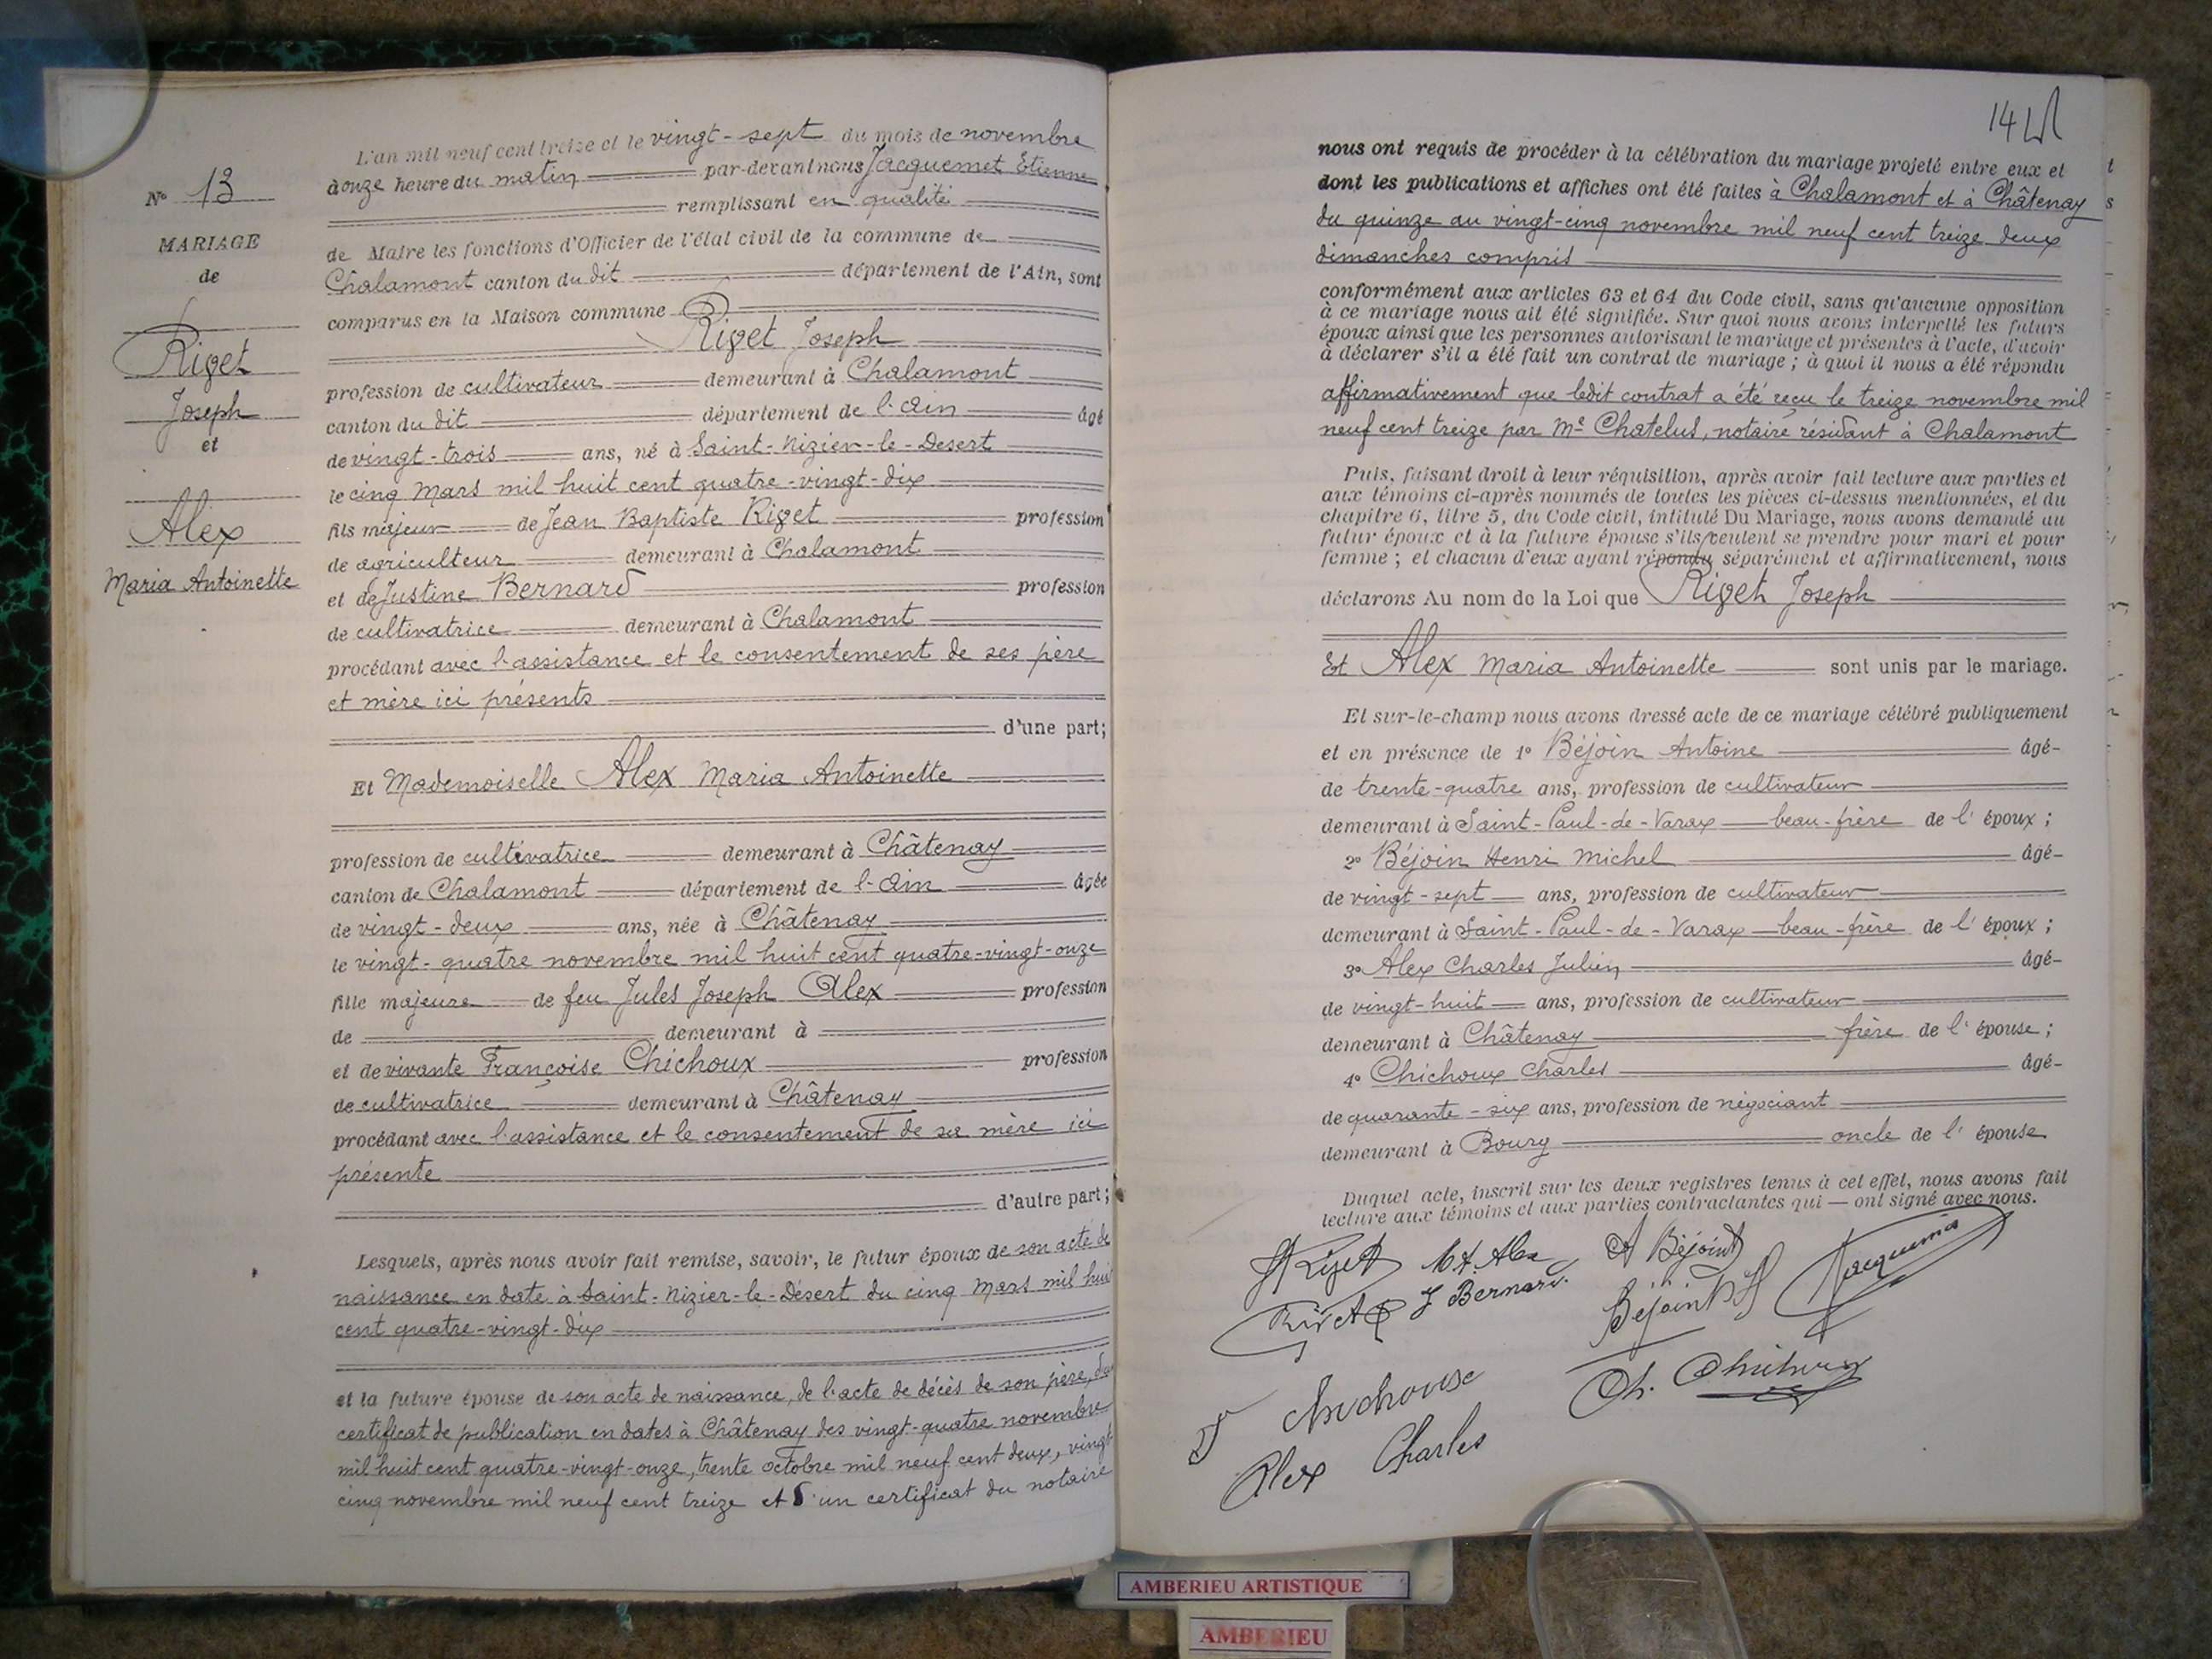 L'an mil neuf cent treize et le vingt-sept du mois de novembre
à onze heure du matin par-devant nous Jacquemet Etienne
remplissant en qualité
de Maire les fonctions d'Officier de l'état civil de la commune de
Chalamont canton du dit département de l'Ain, sont
comparus en la Maison commune
Rivet Joseph
profession de cultivateur demeurant à Chalamont
canton du dit département de l'Ain âgé
de vingt-trois ans, né à Saint-Nizier-le-Desert
le cinq Mars mil huit cent quatre-vingt-dix
fils majeur de Jean Baptiste Rivet profession
de agriculteur demeurant à Chalamont
et de Justine Bernard profession
de cultivatrice demeurant à Chalamont
procédant avec l'assistance et le consentement de ses père
et mère ici présents
d'une part;
Et Mademoiselle Alex Maria Antoinette
profession de cultivatrice demeurant à Châtenay
canton de Chalamont département de l'Ain âgée
de vingt-deux ans, née à Châtenay
le vingt-quatre novembre mil huit cent quatre-vingt-onze
fille majeure de feu Jules Joseph Alex profession
de demeurant à
et de vivante Françoise Chichoux profession
de cultivatrice demeurant à Châtenay
procédant avec l'assistance et le consentement de sa mère ici
présente
d'autre part;
Lesquels, après nous avoir fait remise, savoir, le futur époux de son acte de
naissance en date à Saint-Nizier-le-Désert du cinq Mars mil huit
cent quatre-vingt-dix
et la future épouse de son acte de naissance, de l'acte de décès de son père, du
certificat de publication en dates à Châtenay des vingt-quatre novembre
mil huit cent quatre-vingt-onze, trente octobre mil neuf cent deux, vingt
cinq novembre mil neuf cent treize et d'un certificat du notaire
N° 13
MARIAGE
de
Rivet
Joseph
et
Alex
Maria Antoinette
14
nous ont requis de procéder à la célébration du mariage projeté entre eux et
dont les publications et affiches ont été faites à Chalamont et à Châtenay
du quinze au vingt-cinq novembre mil neuf cent treize deux
dimanches compris
conformément aux articles 63 et 64 du Code civil, sans qu'aucune opposition
à ce mariage nous ait été signifiée. Sur quoi nous avons interpellé les futurs
époux ainsi que les personnes autorisant le mariage et présentes à l'acte, d'avoir
à déclarer s'il a été fait un contrat de mariage ; à quoi il nous a été répondu
affirmativement que ledit contrat a été reçu le treize novembre mil
neuf cent treize par Me Chatelus, notaire résidant à Chalamont
Puis, faisant droit à leur réquisition, après avoir fait lecture aux parties et
aux témoins ci-après nommés de toutes les pièces ci-dessus mentionnées, et du
chapitre 6, titre 5, du Code civil, intitulé Du Mariage, nous avons demandé au
futur époux et à la future épouse s'ils veulent se prendre pour mari et pour
femme ; et chacun d'eux ayant répondu séparément et affirmativement, nous
déclarons Au nom de la Loi que Rivet Joseph
Et Alex Maria Antoinette sont unis par le mariage.
Et sur-le-champ nous avons dressé acte de ce mariage célébré publiquement
et en présence de 1° Béjoin Antoine âgé
de trente-quatre ans, profession de cultivateur
demeurant à Saint-Paul-de-Varax beau-frère de l'époux ;
2° Béjoin Henri Michel âgé
de vingt-sept ans, profession de cultivateur
demeurant à Saint-Paul-de-Varax beau-frère de l'époux ;
3° Alex Charles Julien âgé
de vingt-huit ans, profession de cultivateur
demeurant à Châtenay frère de l'épouse ;
4° Chichoux Charles âgé
de quarante-six ans, profession de négociant
demeurant à Bourg oncle de l'épouse
Duquel acte, inscrit sur les deux registres tenus à cet effet, nous avons fait
lecture aux témoins et aux parties contractantes qui — ont signé avec nous.
J Rivet M. A. Alex A Béjoint Jacquemet
Rivet J Bernard Béjoint H
F Chichoux Ch. Chichoux
Alex Charles
AMBERIEU ARTISTIQUE
AMBERIEU